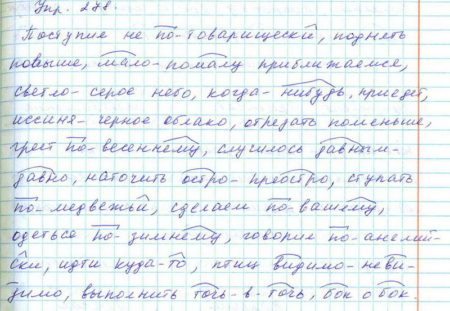 Упр. 278.
Поступил не по-товарищески, поднять
повыше, мало-помалу приближаемся,
светло-серое небо, когда-нибудь приедет,
иссиня-черное облако, отрезать поменьше,
греет по-весеннему, случилось давным-
давно, наточить остро-преостро, ступать
по-медвежьи, сделаем по-вашему,
одеться по-зимнему, говорил по-англий-
ски, идти куда-то, птиц видимо-неви-
димо, выполнить точь-в-точь, бок о бок.